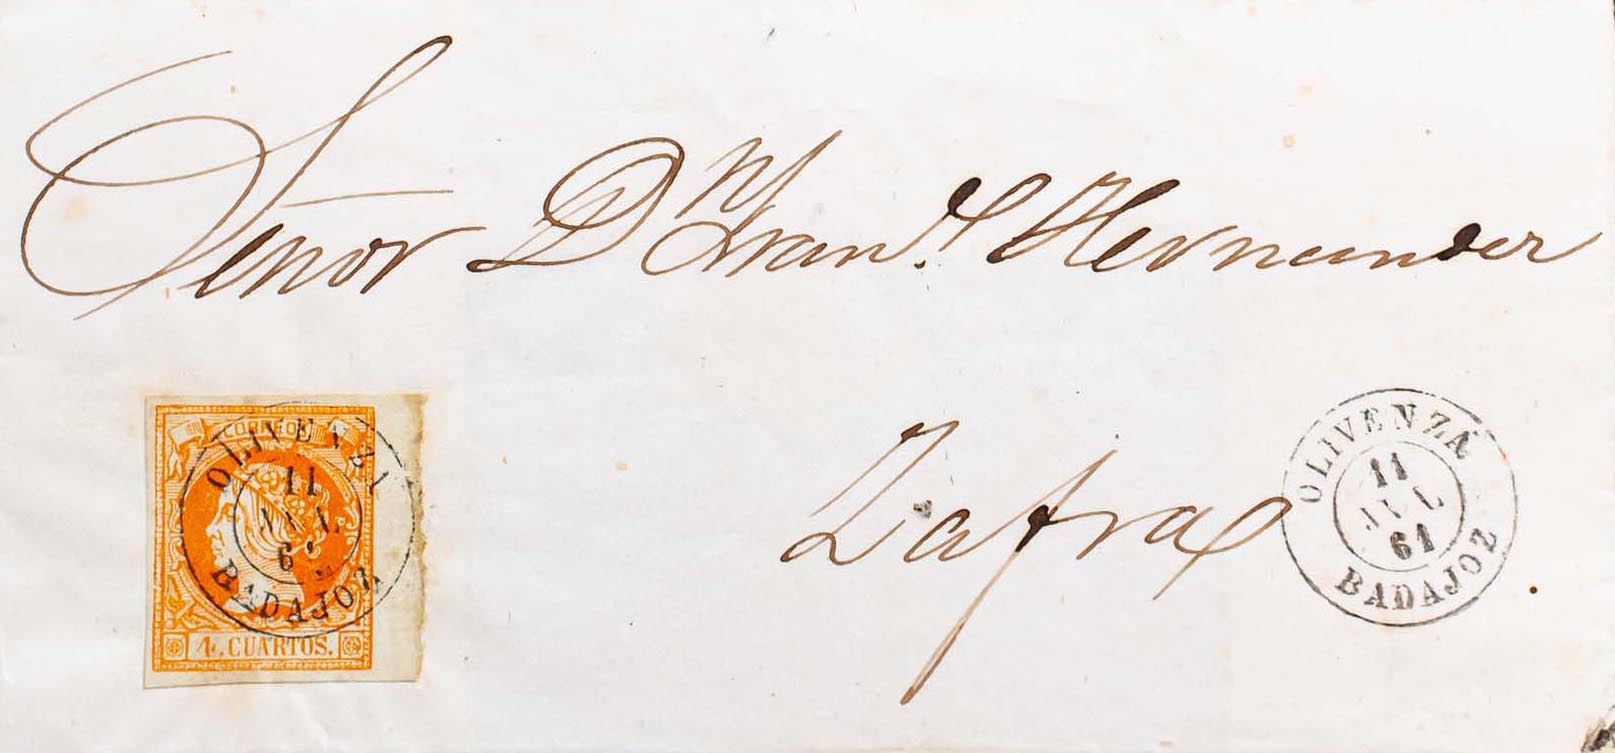 Señor Dn Fran.co Hernandez
Zafra
CORREOS
OLIVENZA
11
JUL
61
BADAJOZ
4 CUARTOS.
OLIVENZA
11
JUL
61
BADAJOZ